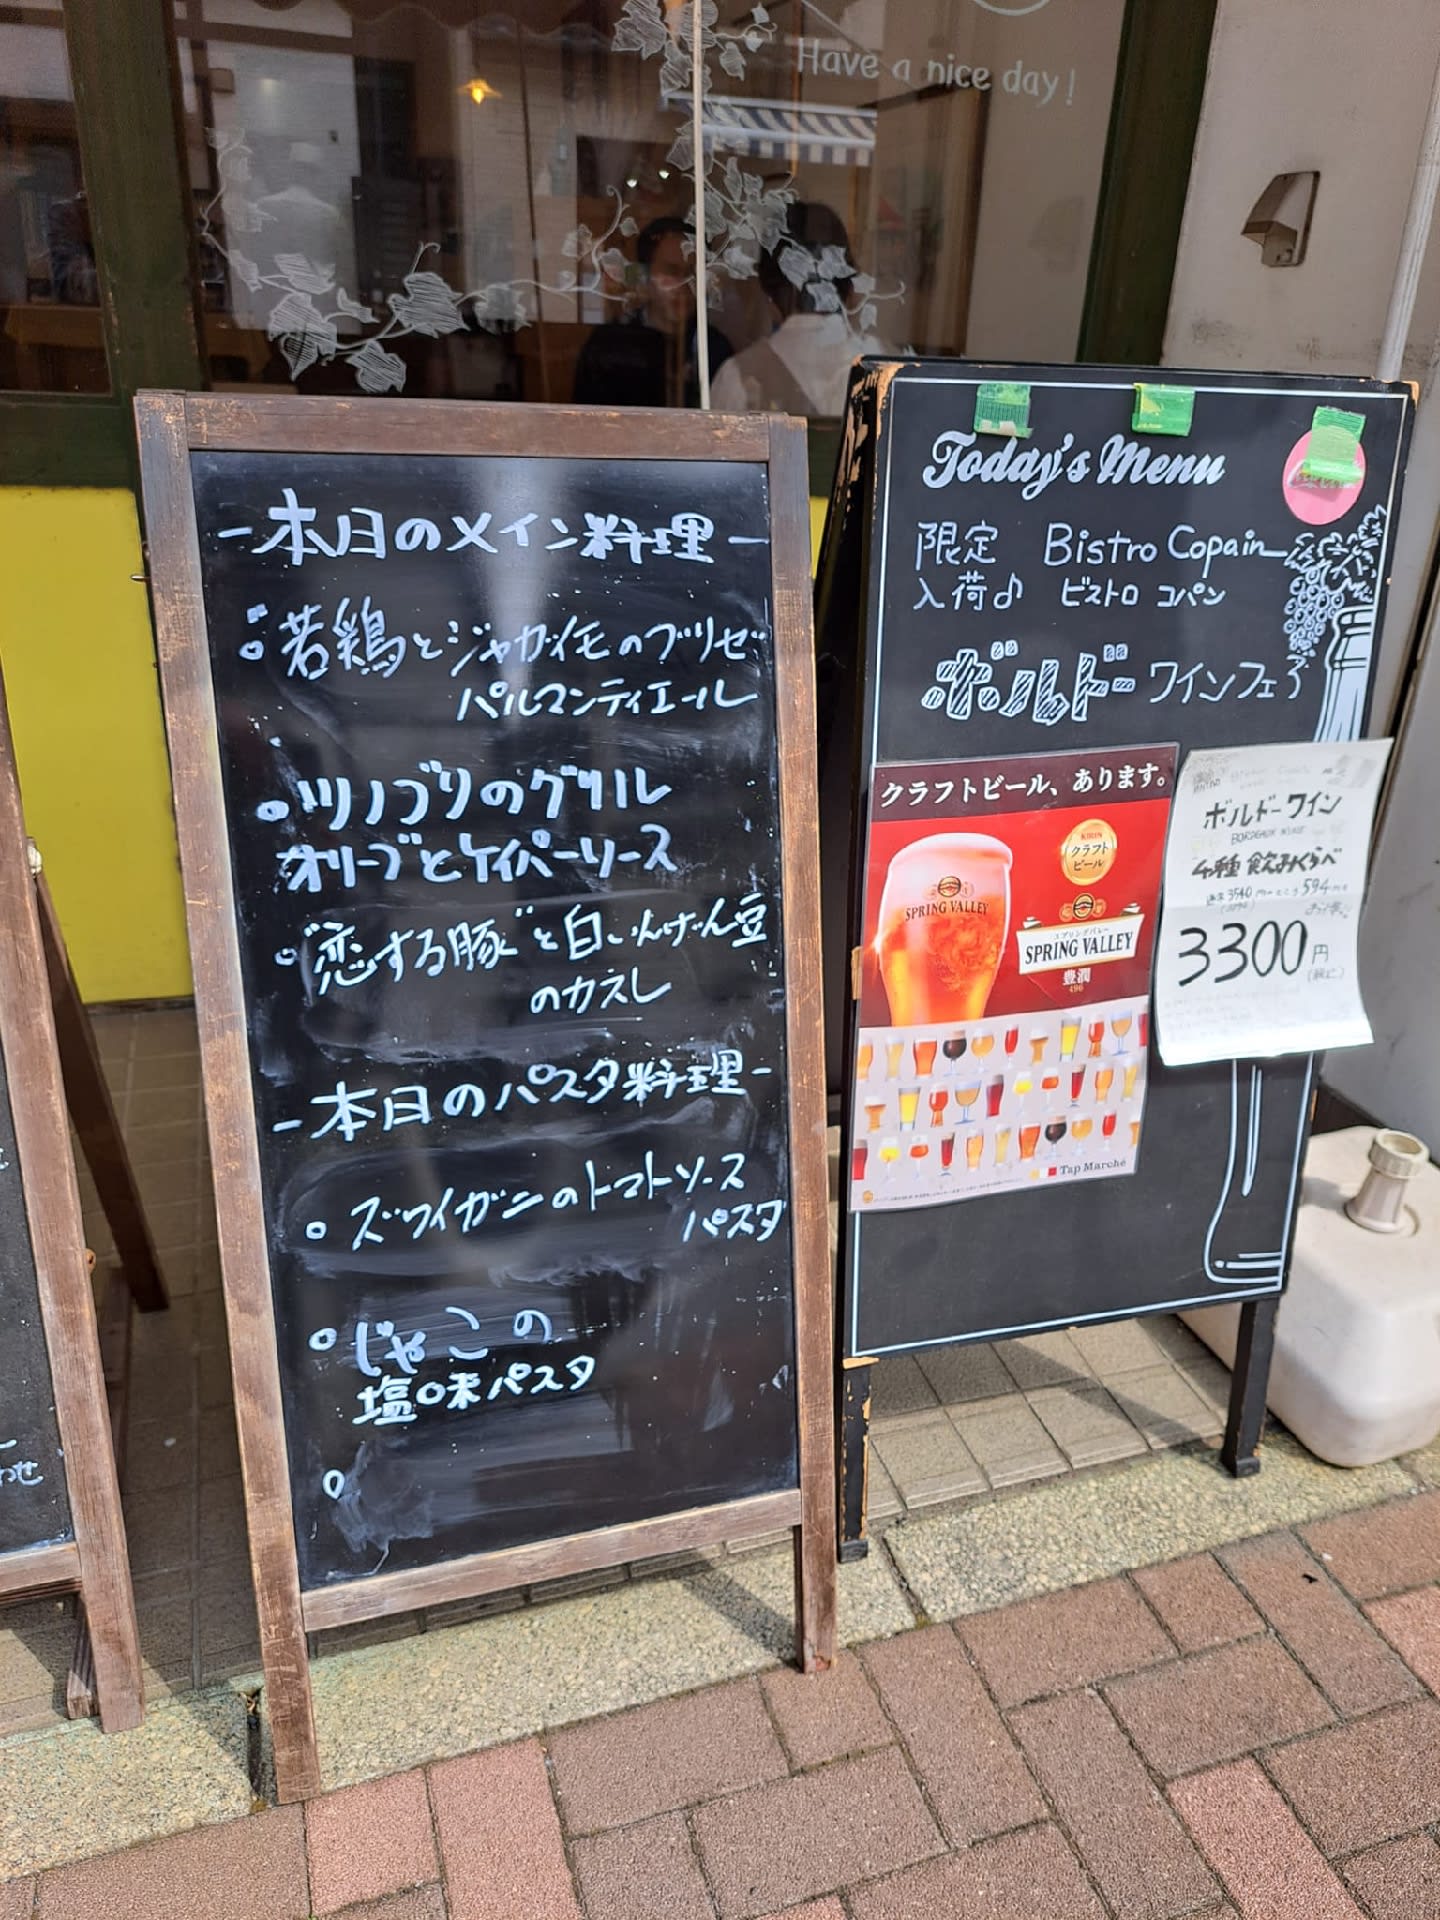 Have a nice day!
-本日のメイン料理-
若鶏とジャガイモのブリゼ
パルマンティエール
ツノブリのグリル
オリーブとケイパーソース
"恋する豚"と白いんげん豆
のカスレ
-本日のパスタ料理-
ズワイガニのトマトソース
パスタ
じゃこの
塩味パスタ
わせ
Today's Menu
限定 Bistro Copain
入荷♪ ビストロ コパン
ボルドーワインフェア
クラフトビール、あります。
KIRIN
クラフト
ビール
SPRING VALLEY
スプリングバレー
SPRING VALLEY
豊潤
496
Tap Marché
ボルドーワイン
BORDEAUX WINE
4種 飲みくらべ
通常3540円のところ594円
3300円
(税込)